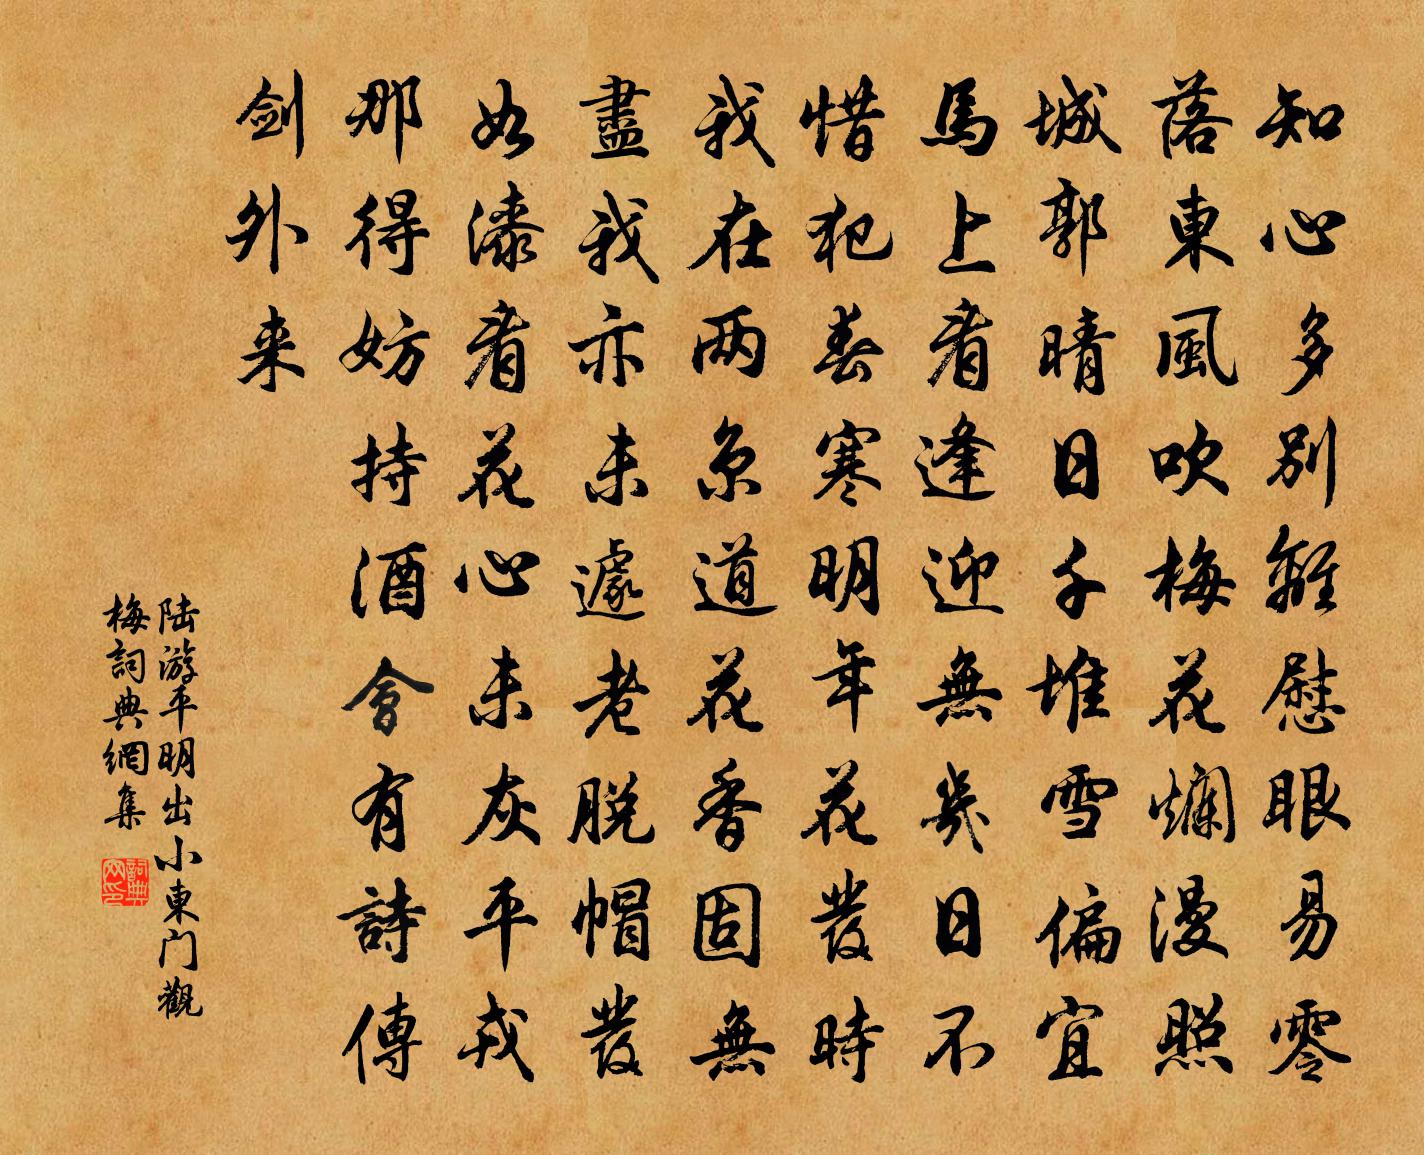 知心多別離慰眼易零
落東風吹梅花爛漫照
城郭晴日千堆雪偏宜
馬上看逢迎無幾日不
惜犯春寒明年花發時
我在两京道花香固無
盡我亦未遽老脱帽發
如漆看花心未灰平戎
那得妨持酒會有詩傳
剑外来
陆游平明出小東门觀
梅詞典網集
詞典网印